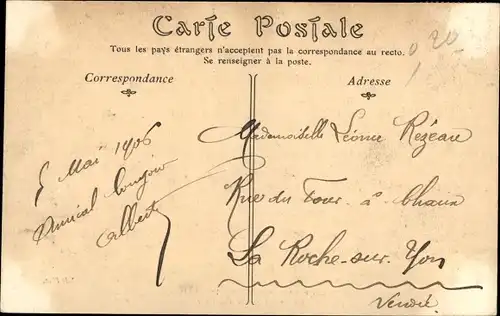 Carte Postale
Tous les pays étrangers n'acceptent pas la correspondance au recto.
Se renseigner à la poste.
Correspondance
Adresse
5 Mai 1906
Amical bonjour
Albert
Mademoiselle Léonie Rezeau
Rue du Four à Chaux
La Roche-sur-Yon
Vendée